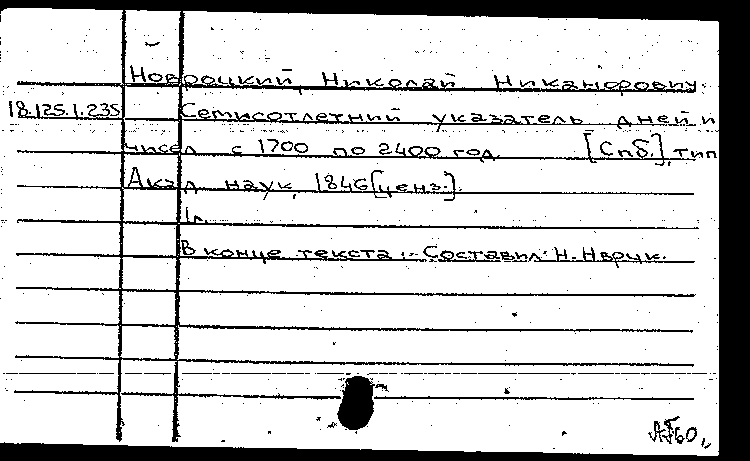 Навроцкий, Николай Никанорович.
18.125.1.235 Семисотлетний указатель дней и
чисел с 1700 по 2400 год. [Спб.], тип.
Акад. наук, 1846 [ценз.].
1л.
В конце текста: Составил Н. Нврцк.